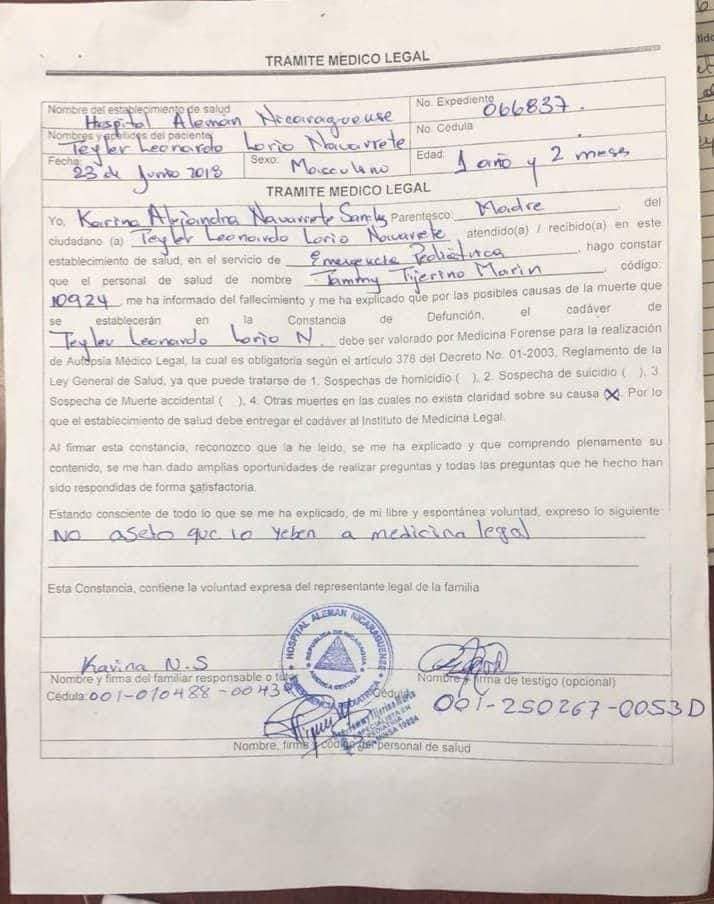 TRAMITE MEDICO LEGAL
Nombre del establecimiento de salud
Hospital Alemán Nicaraguense
No. Expediente 066837.
Nombres y apellidos del paciente
Teyler Leonardo Lorio Navarrete
No. Cédula
Fecha: 23 de Junio 2018
Sexo: Masculino
Edad: 1 año y 2 meses
TRAMITE MEDICO LEGAL
Yo, Karina Alejandra Navarrete Parentesco: Madre del
ciudadano (a) Teyler Leonardo Lorio Navarrete atendido(a) / recibido(a) en este
establecimiento de salud, en el servicio de Emergencia Pediátrica, hago constar
que el personal de salud de nombre Tammy Tijerino Marin, código:
10924, me ha informado del fallecimiento y me ha explicado que por las posibles causas de la muerte que
se establecerán en la Constancia de Defunción, el cadáver de
Teyler Leonardo Lorio N. debe ser valorado por Medicina Forense para la realización
de Autopsia Médico Legal, la cual es obligatoria según el artículo 378 del Decreto No. 01-2003, Reglamento de la
Ley General de Salud, ya que puede tratarse de 1. Sospechas de homicidio ( ), 2. Sospecha de suicidio ( ), 3.
Sospecha de Muerte accidental ( ), 4. Otras muertes en las cuales no exista claridad sobre su causa (X). Por lo
que el establecimiento de salud debe entregar el cadáver al Instituto de Medicina Legal.
Al firmar esta constancia, reconozco que la he leído, se me ha explicado y que comprendo plenamente su
contenido, se me han dado amplias oportunidades de realizar preguntas y todas las preguntas que he hecho han
sido respondidas de forma satisfactoria.
Estando consciente de todo lo que se me ha explicado, de mi libre y espontánea voluntad, expreso lo siguiente
No aseto que lo yeben a medicina legal
Esta Constancia, contiene la voluntad expresa del representante legal de la familia
HOSPITAL ALEMAN NICARAGUENSE
REPUBLICA DE NICARAGUA
AMERICA CENTRAL
EMERGENCIA PEDIATRICA
Karina N.S
Nombre y firma del familiar responsable o
Nombre y firma de testigo (opcional)
Cédula: 001-010488-0043
Cédula
001-250267-0053D
Tammy Tijerino Marin
ESPECIALISTA EN
PEDIATRIA
Nombre, firma y código del personal de salud